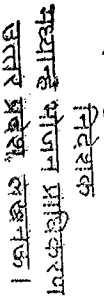 निदेशक
मध्यान्ह भोजन प्राधिकरण
उत्तर प्रदेश, लखनऊ।